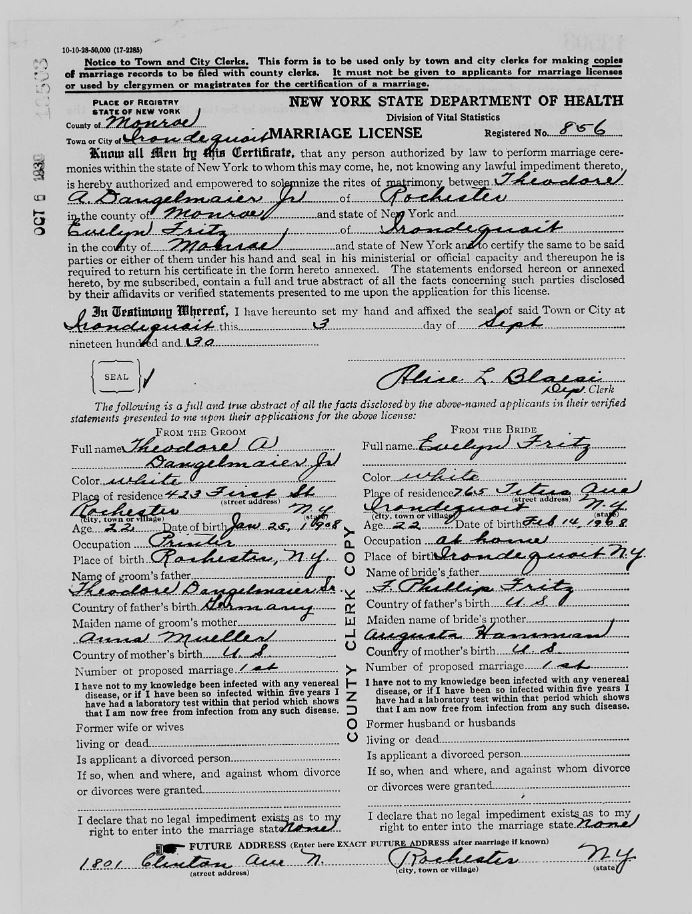 10-10-28-50,000 (17-2285)
Notice to Town and City Clerks. This form is to be used only by town and city clerks for making copies
of marriage records to be filed with county clerks. It must not be given to applicants for marriage licenses
or used by clergymen or magistrates for the certification of a marriage.
PLACE OF REGISTRY
STATE OF NEW YORK
NEW YORK STATE DEPARTMENT OF HEALTH
Division of Vital Statistics
County of Monroe
Town or City of Irondequoit
MARRIAGE LICENSE
Registered No. 856
OCT 6 1930
Know all Men by this Certificate, that any person authorized by law to perform marriage cere-
monies within the state of New York to whom this may come, he, not knowing any lawful impediment thereto,
is hereby authorized and empowered to solemnize the rites of matrimony between Theodore
A. Dangelmaier Jr of Rochester
in the county of Monroe and state of New York and
Evelyn Fritz of Irondequoit
in the county of Monroe and state of New York and to certify the same to be said
parties or either of them under his hand and seal in his ministerial or official capacity and thereupon he is
required to return his certificate in the form hereto annexed. The statements endorsed hereon or annexed
hereto, by me subscribed, contain a full and true abstract of all the facts concerning such parties disclosed
by their affidavits or verified statements presented to me upon the application for this license.
In Testimony Whereof, I have hereunto set my hand and affixed the seal of said Town or City at
Irondequoit this 3 day of Sept
nineteen hundred and 30
SEAL
Alice L. Blaesi
Dep. Clerk
The following is a full and true abstract of all the facts disclosed by the above-named applicants in their verified
statements presented to me upon their applications for the above license:
FROM THE GROOM
Full name Theodore A
Dangelmaier Jr
Color white
Place of residence 423 First St
(street address)
Rochester N.Y.
(city, town or village) (state)
Age 22 Date of birth Jan 25, 1908
Occupation Printer
Place of birth Rochester, N.Y.
Name of groom's father
Theodore Dangelmaier Sr
Country of father's birth Germany
Maiden name of groom's mother
Anna Mueller
Country of mother's birth U S
Number of proposed marriage 1st
I have not to my knowledge been infected with any venereal
disease, or if I have been so infected within five years I
have had a laboratory test within that period which shows
that I am now free from infection from any such disease.
Former wife or wives
living or dead
Is applicant a divorced person
If so, when and where, and against whom divorce
or divorces were granted
I declare that no legal impediment exists as to my
right to enter into the marriage state None
COUNTY CLERK COPY
FROM THE BRIDE
Full name Evelyn Fritz
Color white
Place of residence 765 Titus Ave
(street address)
Irondequoit N.Y.
(city, town or village) (state)
Age 22 Date of birth Feb 14, 1908
Occupation at home
Place of birth Irondequoit N.Y.
Name of bride's father
F. Phillip Fritz
Country of father's birth U S
Maiden name of bride's mother
Augusta Hamman
Country of mother's birth U S
Number of proposed marriage 1st
I have not to my knowledge been infected with any venereal
disease, or if I have been so infected within five years I
have had a laboratory test within that period which shows
that I am now free from infection from any such disease.
Former husband or husbands
living or dead
Is applicant a divorced person
If so, when and where, and against whom divorce
or divorces were granted
I declare that no legal impediment exists as to my
right to enter into the marriage state None
FUTURE ADDRESS (Enter here EXACT FUTURE ADDRESS after marriage if known)
1801 Clinton Ave N. Rochester N.Y.
(street address) (city, town or village) (state)